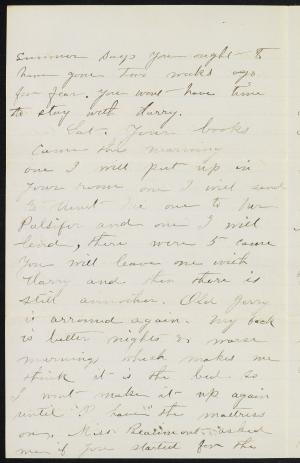 summer days you ought to
have gone two weeks ago
for fear you wont have time
to stay with Harry.
Sat. Your books
came this morning
one I will put up in
your room one I will send
to Aunt one to
Pulsifer and one I will
lend, there were 5 came
You will leave one with
Harry and then there is
still another. Old Jerry
is around again. My back
is better nights & worse
mornings which makes me
think it is the bed so
I wont make it up again
until "I have" the mattress
over. Miss Beaumont asked
me if you started for the